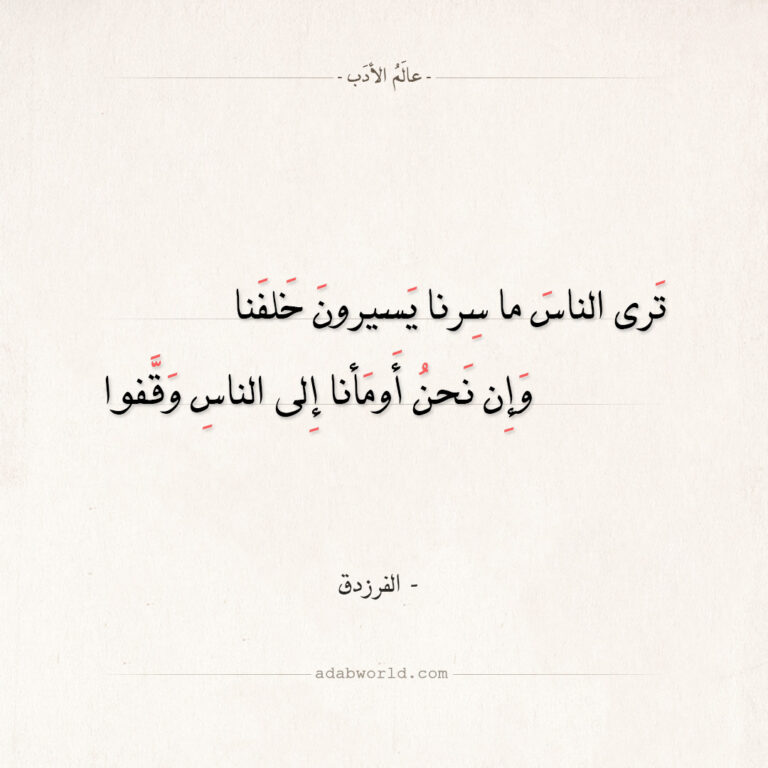 - عالَمُ الأدَب -
تَرى الناسَ ما سِرنا يَسيرونَ خَلفَنا
وَإِن نَحنُ أَومَأنا إِلى الناسِ وَقَّفوا
- الفرزدق
adabworld.com